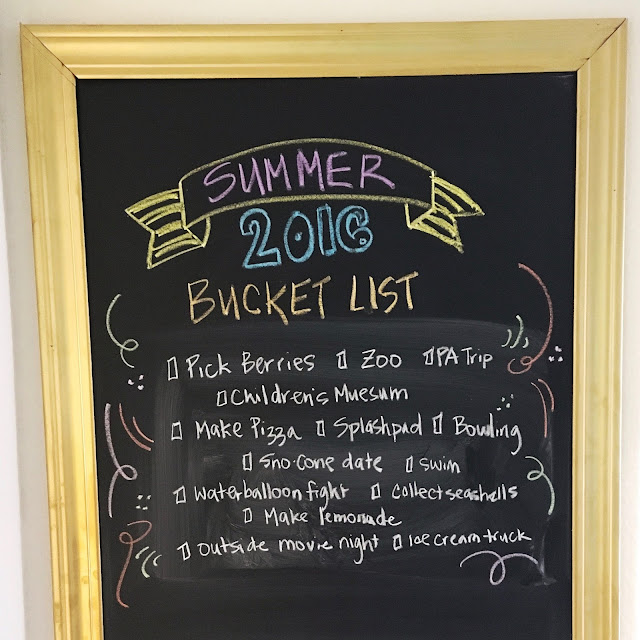 SUMMER
2016
BUCKET LIST
Pick Berries Zoo PA Trip
Children's Muesum
Make Pizza Splashpad Bowling
Sno-cone date swim
Waterballoon fight collect seashells
Make lemonade
outside movie night Ice cream truck